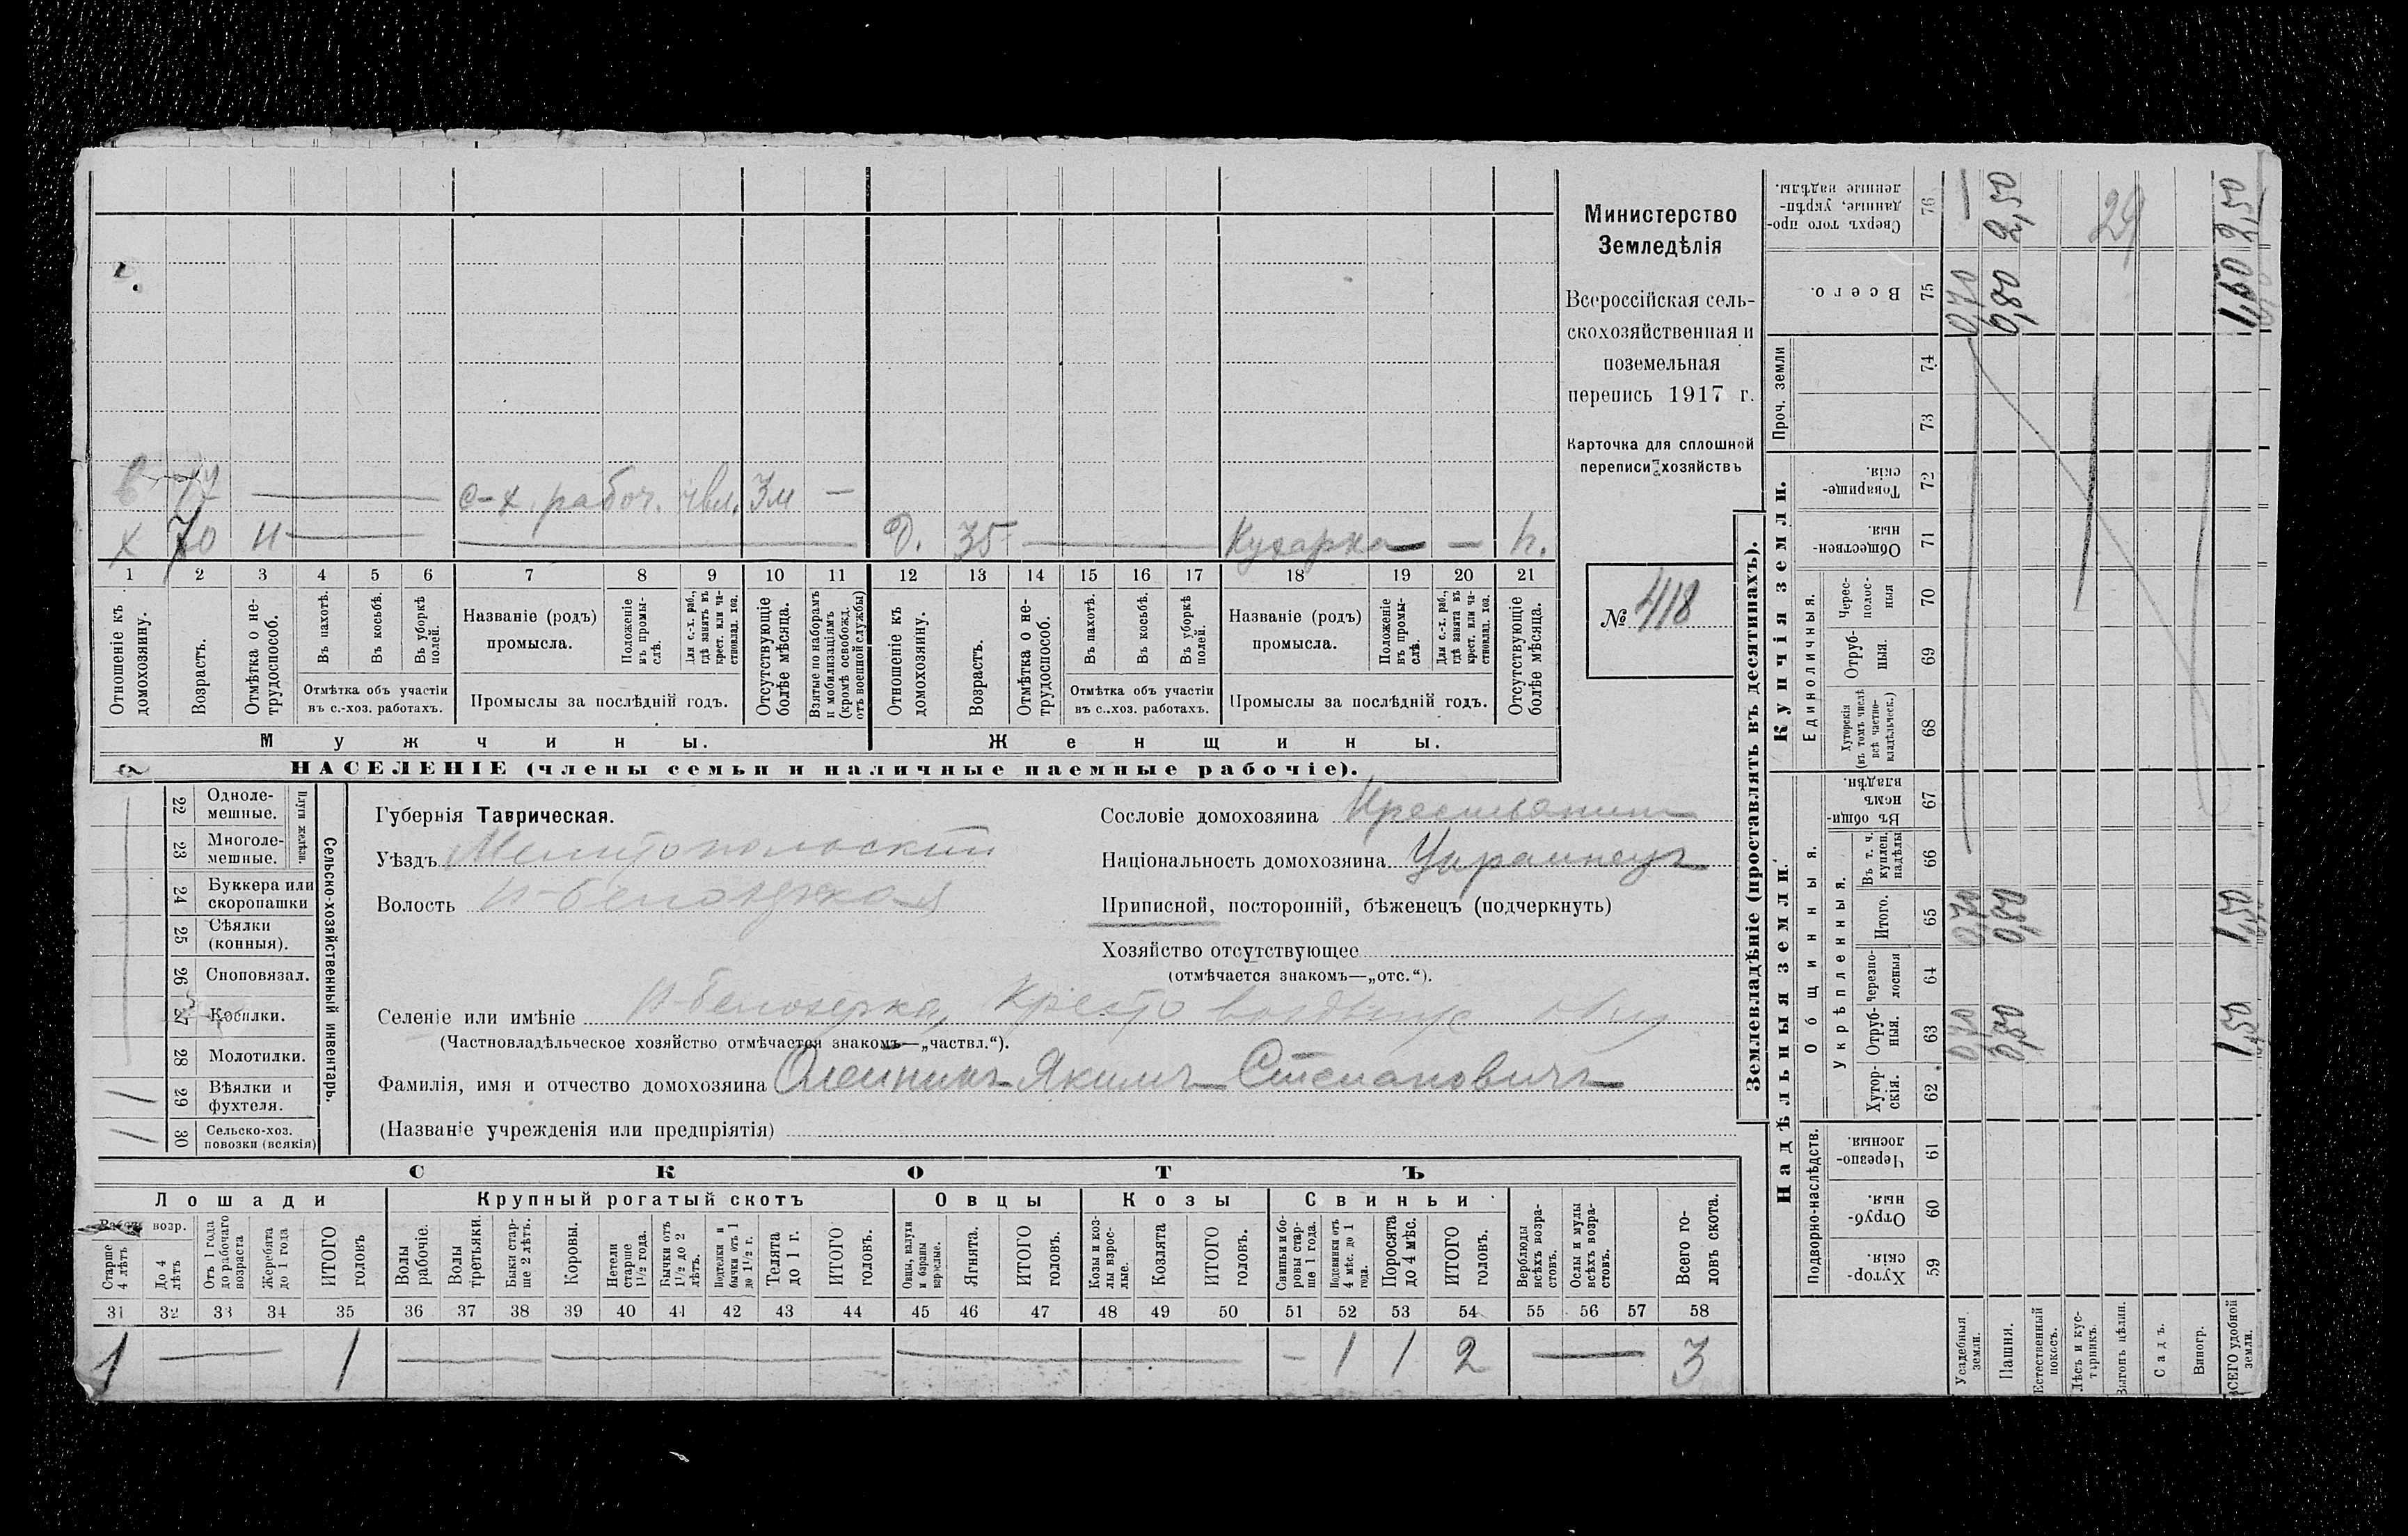 Министерство
Земледѣлія
Всероссійская сель-
скохозяйственная и
поземельная
перепись 1917 г.
Карточка для сплошной
переписи хозяйствъ
№ 418
с-х. рабоч. 3м —
х 70 н — Д. 35 — Кухарка — — п.
1 2 3 4 5 6 7 8 9 10 11 12 13 14 15 16 17 18 19 20 21
Отношеніе къ домохозяину.
Возрастъ.
Отмѣтка о не-трудоспособ.
Въ пахотѣ.
Въ косьбѣ.
Въ уборкѣ полей.
Отмѣтка объ участіи
въ с.-хоз. работахъ.
Названіе (родъ)
промысла.
Положеніе въ промы-слѣ.
Для с.-х. раб., гдѣ занятъ въ крест. или ча-стновлад. хоз.
Промыслы за послѣдній годъ.
Отсутствующіе болѣе мѣсяца.
Взятые по наборамъ и мобилизаціямъ (кромѣ освобожд. отъ военной службы)
Отношеніе къ домохозяину.
Возрастъ.
Отмѣтка о не-трудоспособ.
Въ пахотѣ.
Въ косьбѣ.
Въ уборкѣ полей.
Отмѣтка объ участіи
въ с..хоз. работахъ.
Названіе (родъ)
промысла.
Положеніе въ промы-слѣ.
Для с.-х. раб., гдѣ занята въ крест. или ча-стновлад. хоз.
Промыслы за послѣдній годъ.
Отсутствующіе болѣе мѣсяца.
Мужчины. Женщины.
НАСЕЛЕНІЕ (члены семьи и наличные наемные рабочіе).
Сельско-хозяйственный инвентарь.
Плуги желѣзн.
22 Одноле-мешные.
23 Многоле-мешные.
24 Буккера или скоропашки
25 Сѣялки (конныя).
26 Сноповязал.
27 Косилки.
28 Молотилки.
29 Вѣялки и фухтеля. 1
30 Сельско-хоз. повозки (всякія) 1
Губернія Таврическая.
Уѣздъ Мелитопольскій
Волость Н-Белозерская
Сословіе домохозяина Крестьянин
Національность домохозяина Украинецъ
Приписной, посторонній, бѣженецъ (подчеркнуть)
Хозяйство отсутствующее
(отмѣчается знакомъ—„отс.“).
Селеніе или имѣніе Н-Белозерка, Кресто воздвиж общ
(Частновладѣльческое хозяйство отмѣчается знакомъ—„частвл.“).
Фамилія, имя и отчество домохозяина Олейникъ Якимъ Степановичъ
(Названіе учрежденія или предпріятія)
СКОТЪ
Лошади Крупный рогатый скотъ Овцы Козы Свиньи
Рабоч. возр.
Старше 4 лѣтъ
До 4 лѣтъ
Отъ 1 года до рабочаго возраста
Жеребята до 1 года
ИТОГО головъ
Волы рабочіе.
Волы третьяки.
Быки стар-ше 2 лѣтъ.
Коровы.
Нетели старше 1½ года.
Бычки отъ 1½ до 2 лѣтъ.
Подтелки и бычки отъ 1 до 1½ г.
Телята до 1 г.
ИТОГО головъ.
Овцы, валухи и бараны взрослые.
Ягнята.
ИТОГО головъ.
Козы и коз-лы взрос-лые.
Козлята
ИТОГО головъ.
Свиньи и бо-ровы стар-ше 1 года.
Подсвинки отъ 4 мѣс. до 1 года.
Поросята до 4 мѣс.
ИТОГО головъ.
Верблюды всѣхъ возра-стовъ.
Ослы и мулы всѣхъ возра-стовъ.
Всего го-ловъ скота.
31 32 33 34 35 36 37 38 39 40 41 42 43 44 45 46 47 48 49 50 51 52 53 54 55 56 57 58
1 — 1 — — — — 1 1 2 — 3
Землевладѣніе (проставлять въ десятинахъ).
Надѣльныя земли. Купчія земли.
Подворно-наслѣдств.
Общинныя.
Укрѣпленныя.
Единоличныя.
Проч. земли
Хутор-скія. 59
Отруб-ныя. 60
Черезпо-лосныя. 61
Хутор-скія. 62
Отруб-ныя. 63
Черезпо-лосныя 64
Итого. 65
Въ т. ч. куплен. надѣлы 66
Въ общи-номъ владѣн. 67
Хуторскія (въ томъ числѣ всѣ частно-владѣльческ.) 68
Отруб-ныя. 69
Черес-полос-ныя 70
Обществен-ныя. 71
Товарище-скія. 72
73
74
Всего. 75
Сверхъ того про-данные, укрѣп-ленные надѣлы. 76
Усадебныя земли. 0,70 0,70 0,70 —
Пашня. 0,80 0,80 0,80 2,50
Естественный покосъ.
Лѣсъ и кус-тарникъ.
Выгонъ цѣлин.
Садъ.
Виногр.
ВСЕГО удобной земли. 1,50 1,50 2,50